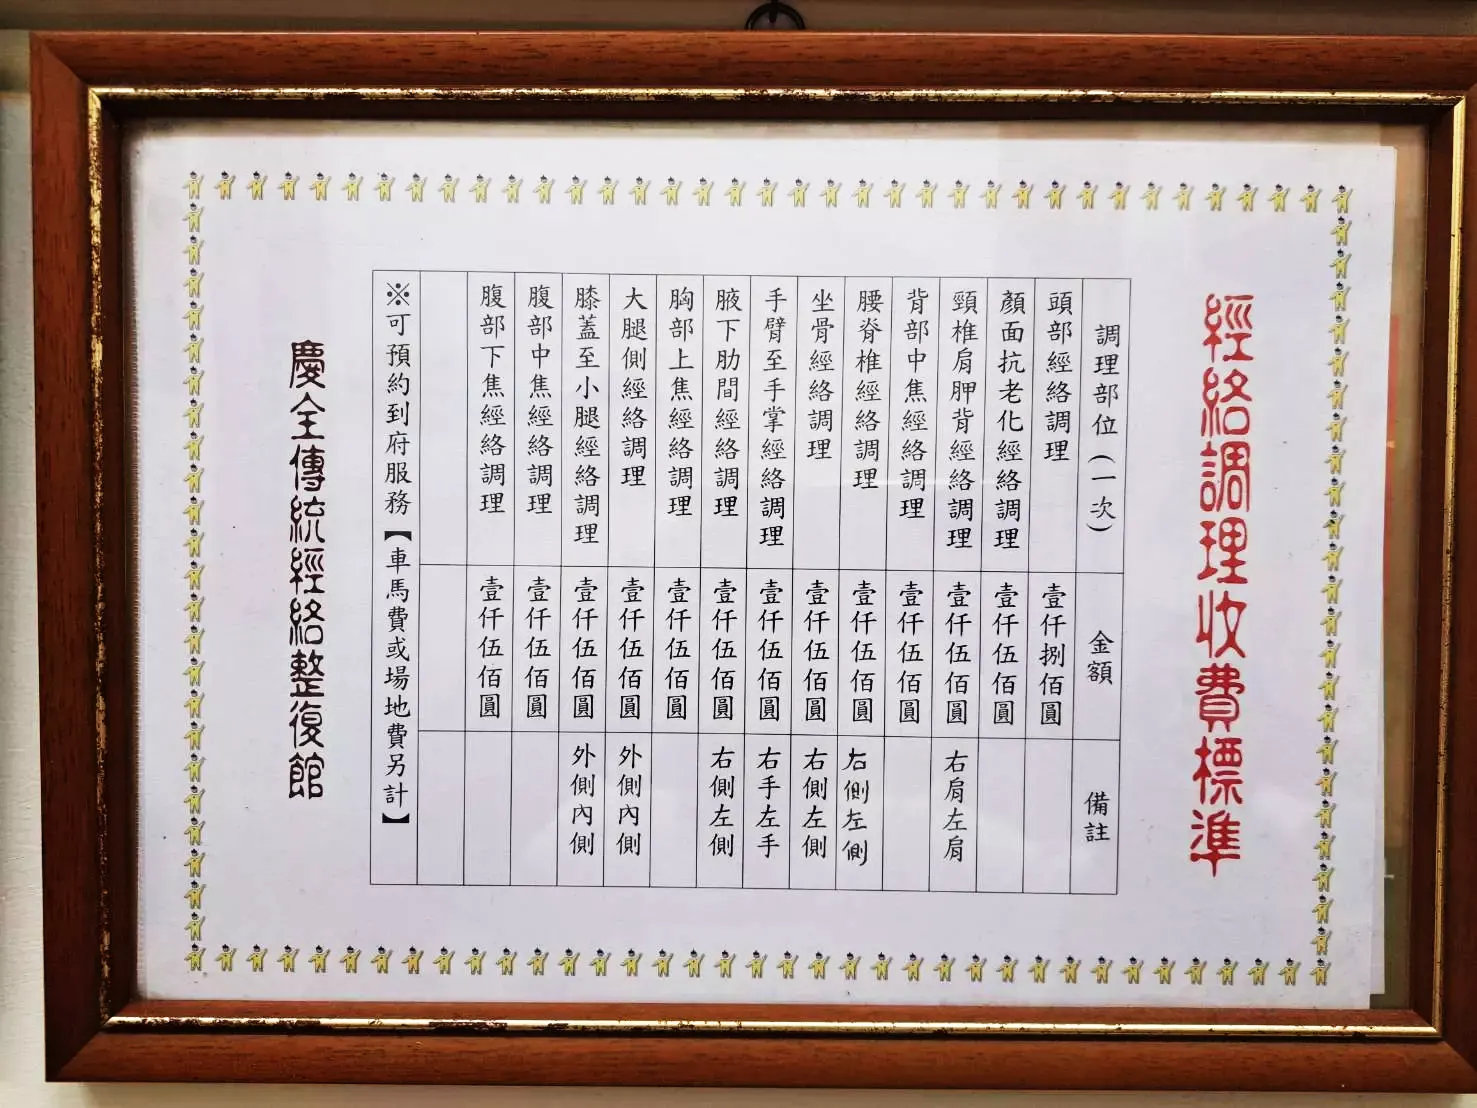 經絡調理收費標準
調理部位(一次) 金額 備註
頭部經絡調理 壹仟捌佰圓
顏面抗老化經絡調理 壹仟伍佰圓
頸椎肩胛背經絡調理 壹仟伍佰圓 右肩左肩
背部中焦經絡調理 壹仟伍佰圓
腰脊椎經絡調理 壹仟伍佰圓 右側左側
坐骨經絡調理 壹仟伍佰圓 右側左側
手臂至手掌經絡調理 壹仟伍佰圓 右手左手
腋下肋間經絡調理 壹仟伍佰圓 右側左側
胸部上焦經絡調理 壹仟伍佰圓
大腿側經絡調理 壹仟伍佰圓 外側內側
膝蓋至小腿經絡調理 壹仟伍佰圓 外側內側
腹部中焦經絡調理 壹仟伍佰圓
腹部下焦經絡調理 壹仟伍佰圓
※可預約到府服務【車馬費或場地費另計】
慶全傳統經絡整復館